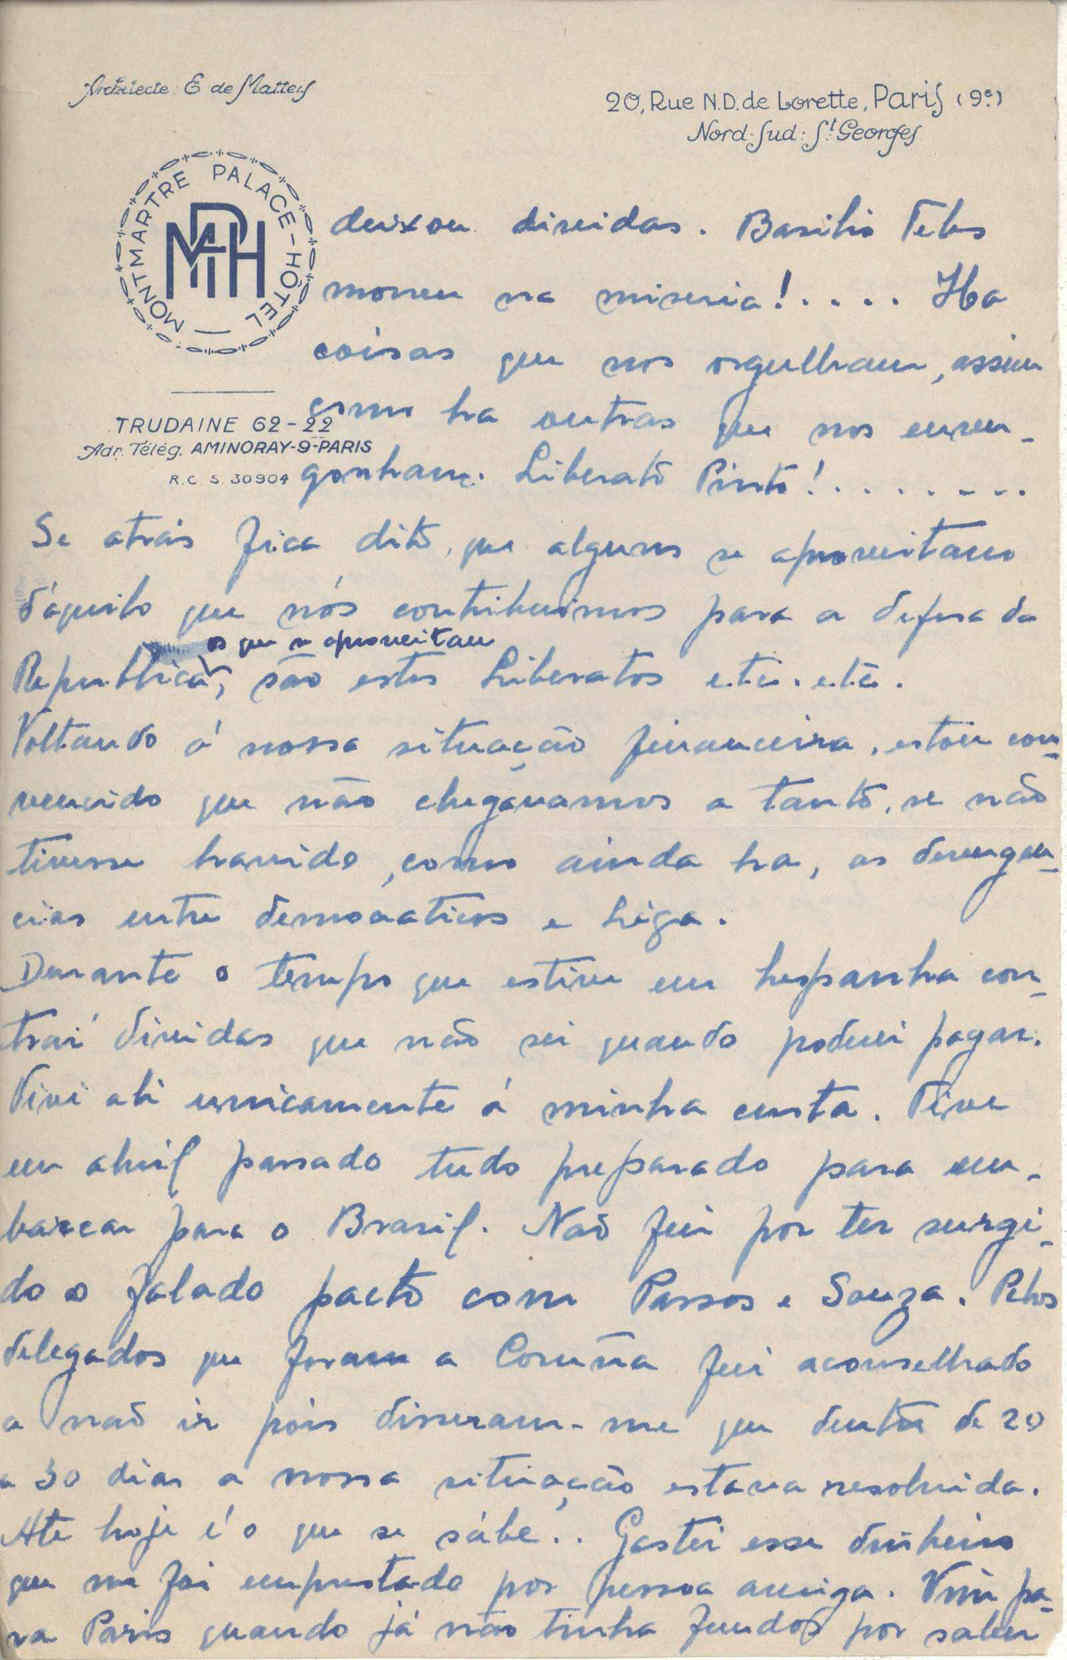 Architecte: E de Matteis
20, Rue N.D. de Lorette, Paris (9e)
Nord-Sud: St Georges
MONTMARTRE PALACE-HÔTEL
MPH
TRUDAINE 62-22
Adr. Télég. AMINORAY-9-PARIS
R.C. S. 30904
deixou dividas. Basilio Teles
morreu na miseria!.... Ha
coisas que nos orgulham, assim
como ha outras que nos enver-
gonham. Liberato Pinto!........
Se atrás fica dito, que alguns se aproveitam
d'aquilo que nós contribuimos para a defesa da
os que se aproveitam
Republica, são estes Liberatos etc. etc.
Voltando á nossa situação financeira, estou con-
vencido que não chegavamos a tanto, se não
tivesse havido, como ainda ha, as divergen-
cias entre democraticos e Liga.
Durante o tempo que estive em hespanha con-
trai dividas que não sei quando poderei pagar.
Vivi ali unicamente á minha custa. Tive
em abril passado tudo preparado para em-
barcar para o Brasil. Não fui por ter surgi-
do o falado pacto com Passos e Souza. Pelos
delegados que foram a Coruña fui aconselhado
a não ir pois disseram-me que dentro de 20
a 30 dias a nossa situação estava resolvida.
Ate hoje é o que se sabe.. Gastei esse dinheiro
que me foi emprestado por pessoa amiga. Vim pa-
ra Paris quando já não tinha fundos por saber